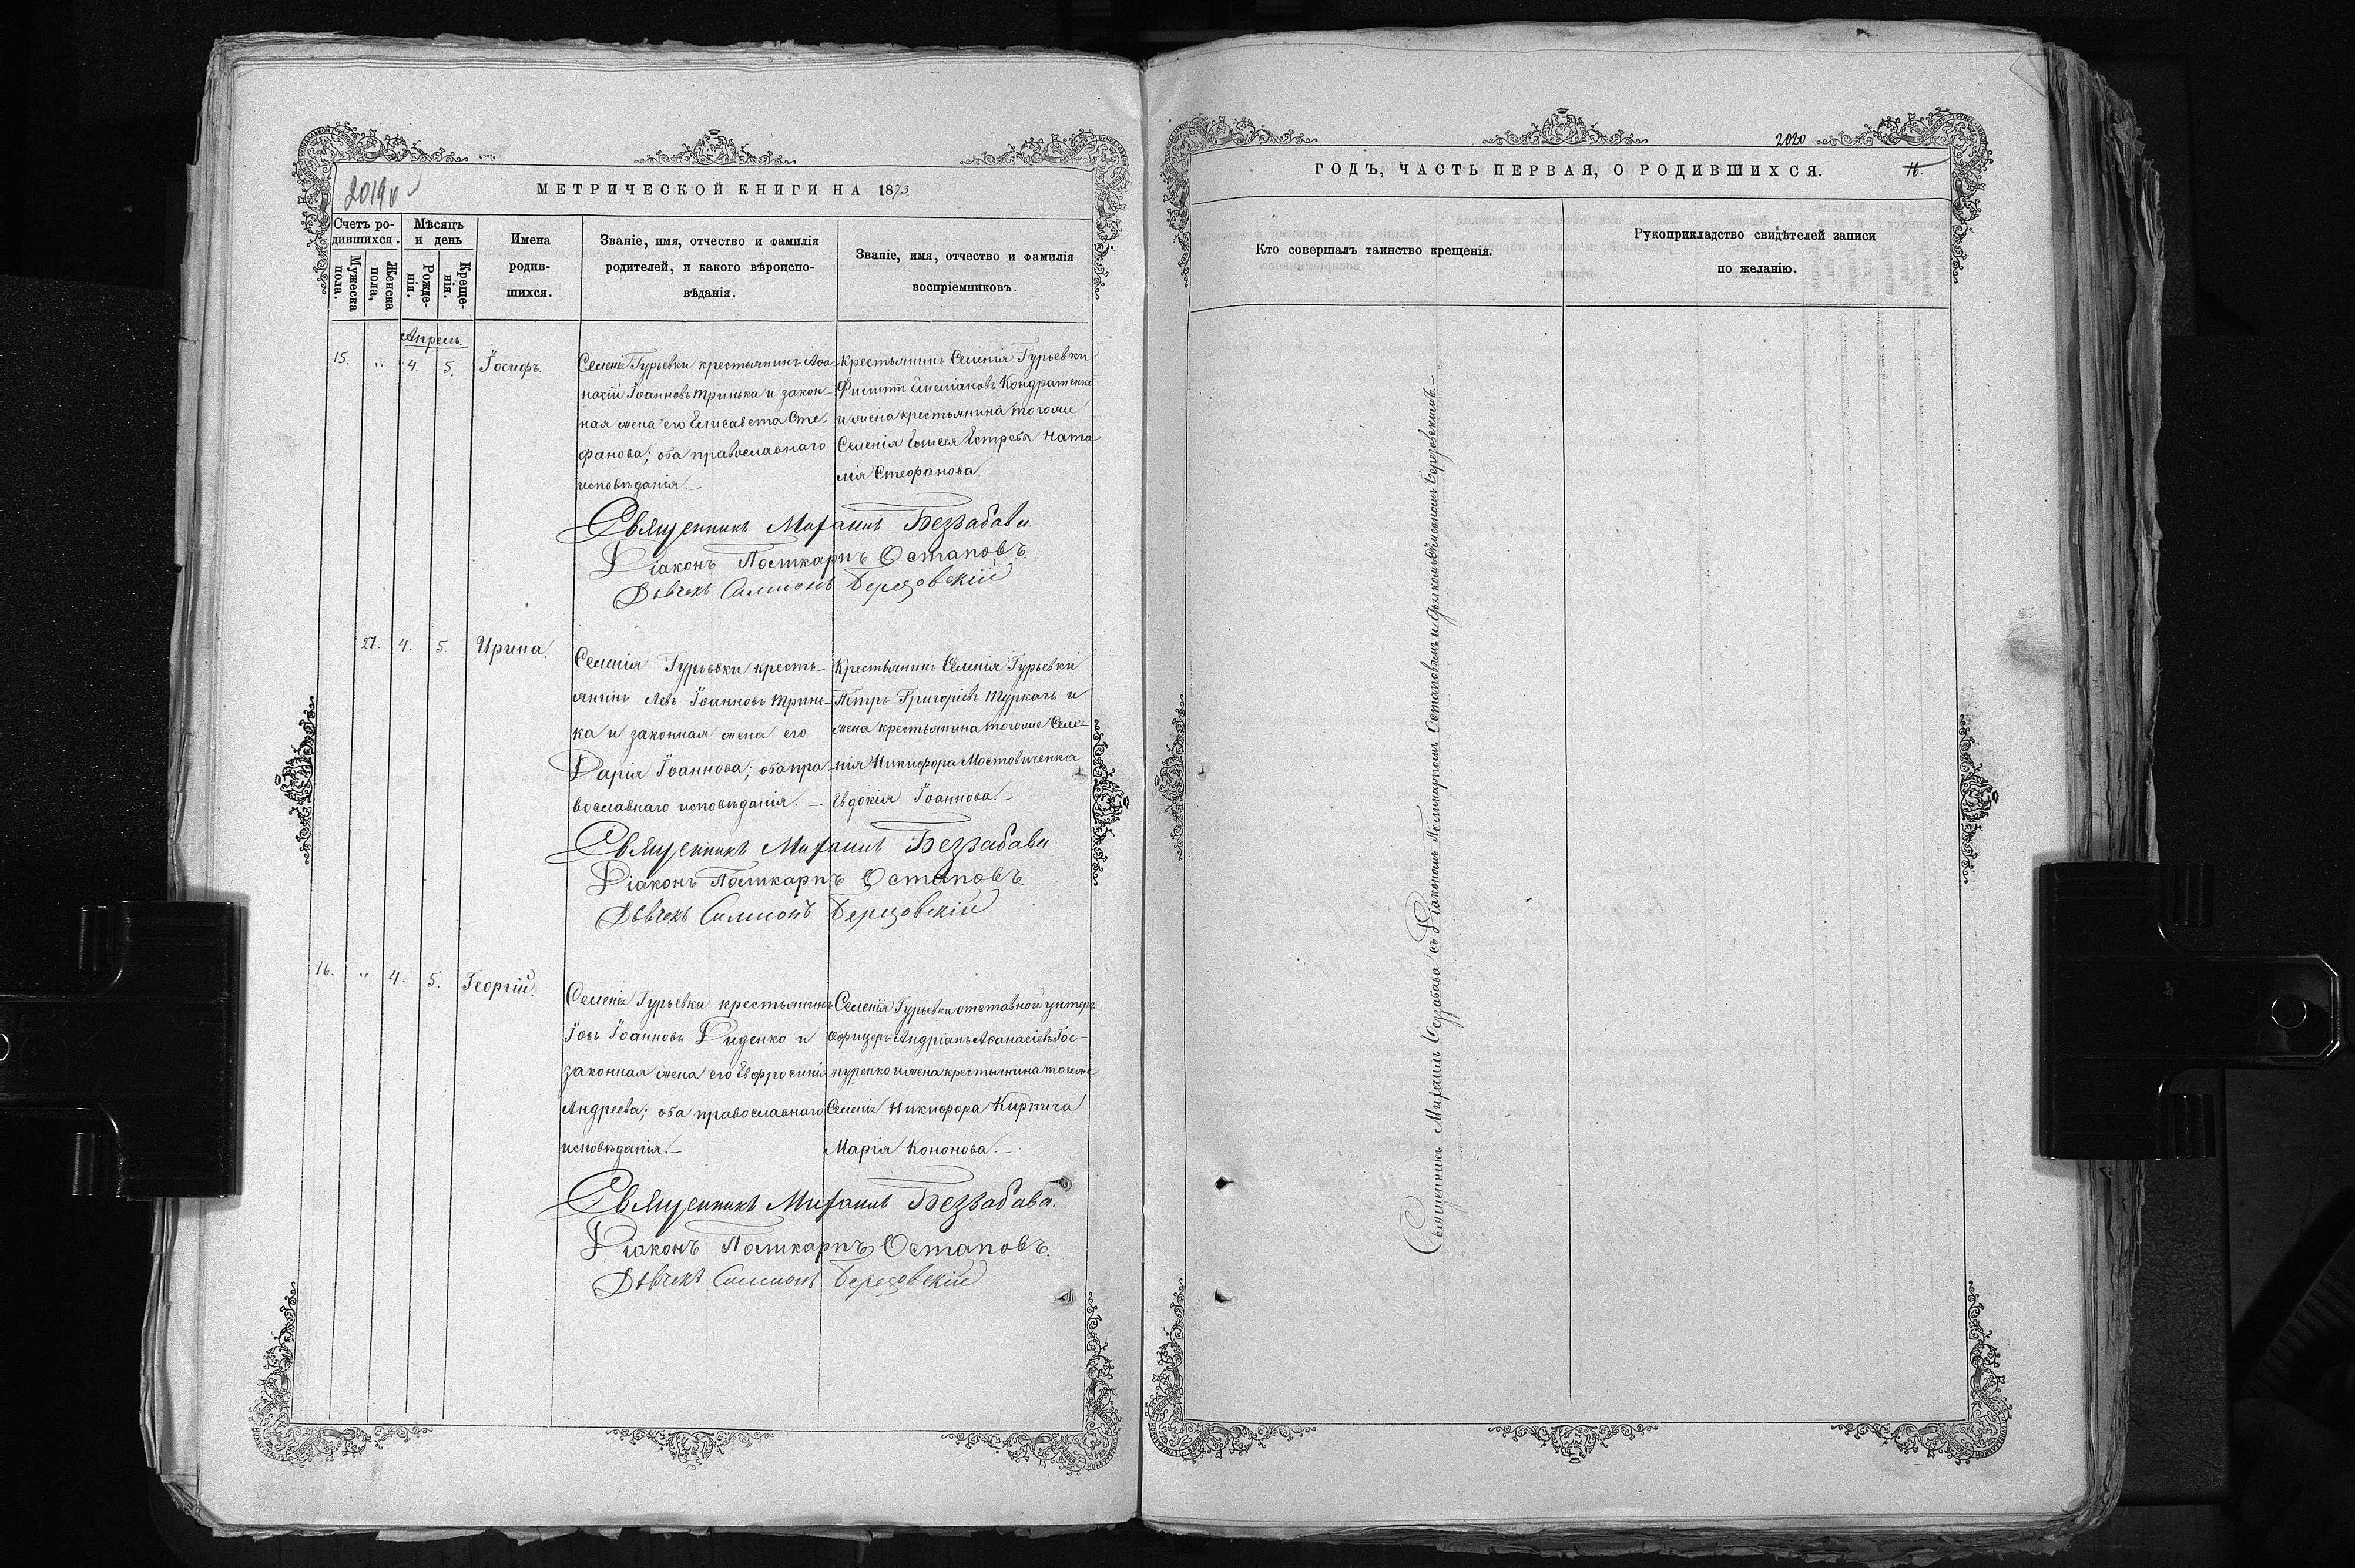 2019 об
МЕТРИЧЕСКОЙ КНИГИ НА 1873
Счетъ ро-
дившихся.
Мужеска
пола.
Женска
пола,
Мѣсяцъ
и день
Рожде-
нія.
Креще-
нія.
Имена
родив-
шихся.
Званіе, имя, отчество и фамилія
родителей, и какого вѣроиспо-
вѣданія.
Званіе, имя, отчество и фамилія
воспріемниковъ.
Апрель
15. " 4. 5. Іосифъ.
Селенія Гурьевки крестьянинъ Аѳа-
насій Іоанновъ Тринька и закон-
ная жена его Елисавета Сте-
фанова; оба православнаго
исповѣданія.
Крестьянинъ Селенія Гурьевки
Филиппъ Емеліановъ Кондратенко
и жена крестьянина тогоже
Селенія Елисея Ната
лія Стефанова.
Священникъ Михаилъ Беззабава
Діаконъ Поликарпъ Остаповъ.
Дьячекъ Симеонъ Березовскій
21. 4. 5. Ирина.
Селенія Гурьевки кресть-
янинъ Левъ Іоанновъ Тринь-
ка и законная жена его
Дарія Іоаннова; оба пра
вославнаго исповѣданія. —
Крестьянинъ Селенія Гурьевки
Петръ Григоріевъ Туркачь и
жена крестьянина тогоже Селе-
нія Никифора Мостовиченка
Евдокія Іоаннова. —
Священникъ Михаилъ Беззабава
Діаконъ Поликарпъ Остаповъ
Дьячекъ Симеонъ Березовскій
16. " 4. 5. Георгій.
Селенія Гурьевки крестьянинъ
Іовъ Іоанновъ Диденко и
законная жена его Евфросинія
Андреева; оба православнаго
исповѣданія. —
Селенія Гурьевки отставной унтеръ
офицеръ Андріанъ Аѳанасіевъ Гос-
пуренко и жена крестьянина тогоже
Селенія Никифора Кирпича
Марія Кононова. —
Священникъ Михаилъ Беззабава.
Діаконъ Поликарпъ Остаповъ.
Дьячекъ Симеонъ Березовскій
2020
ГОДЪ, ЧАСТЬ ПЕРВАЯ, О РОДИВШИХСЯ.
16.
Кто совершалъ таинство крещенія.
Рукоприкладство свидѣтелей записи
по желанію.
Священникъ Михаилъ Беззабава съ Діакономъ Поликарпомъ Остаповымъ и Дьячкомъ Симеономъ Березовскимъ. —